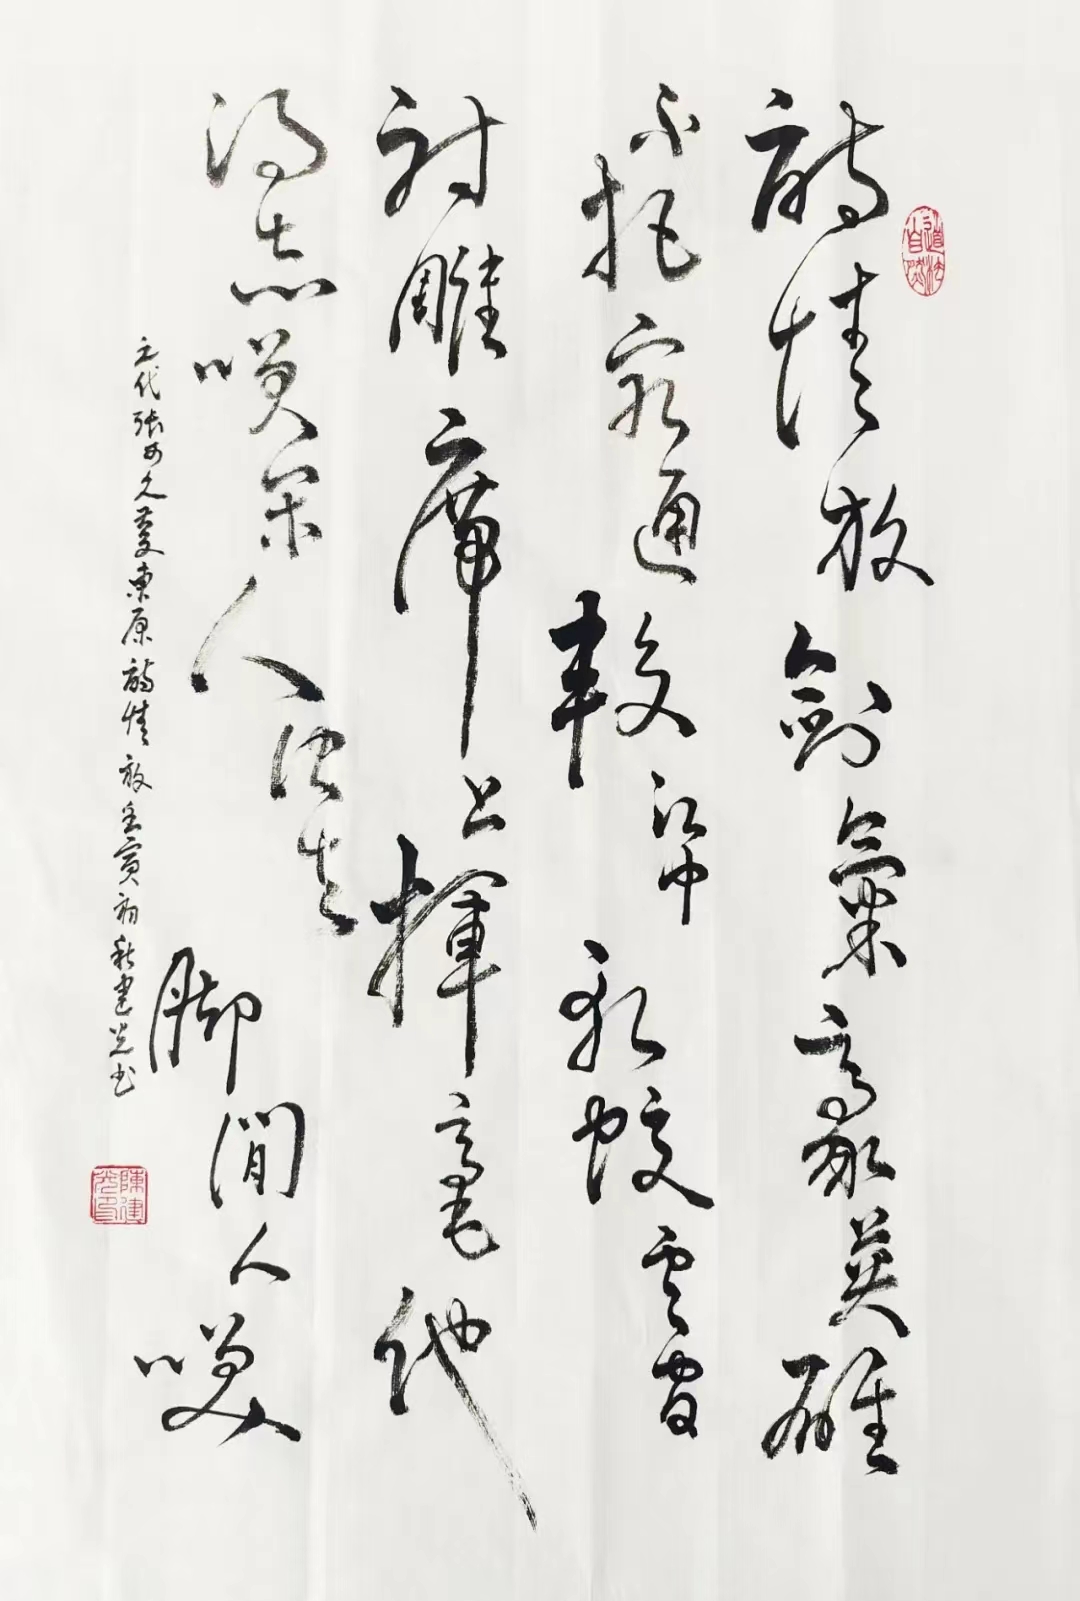 道法自然
詩情放劍氣豪英雄
不把窮通較江中斬蛟雲間
射雕席上揮毫他
得志笑閑人他失脚閒人笑
元代張可久慶東原詩情放壬寅初秋建光书
陳建光印